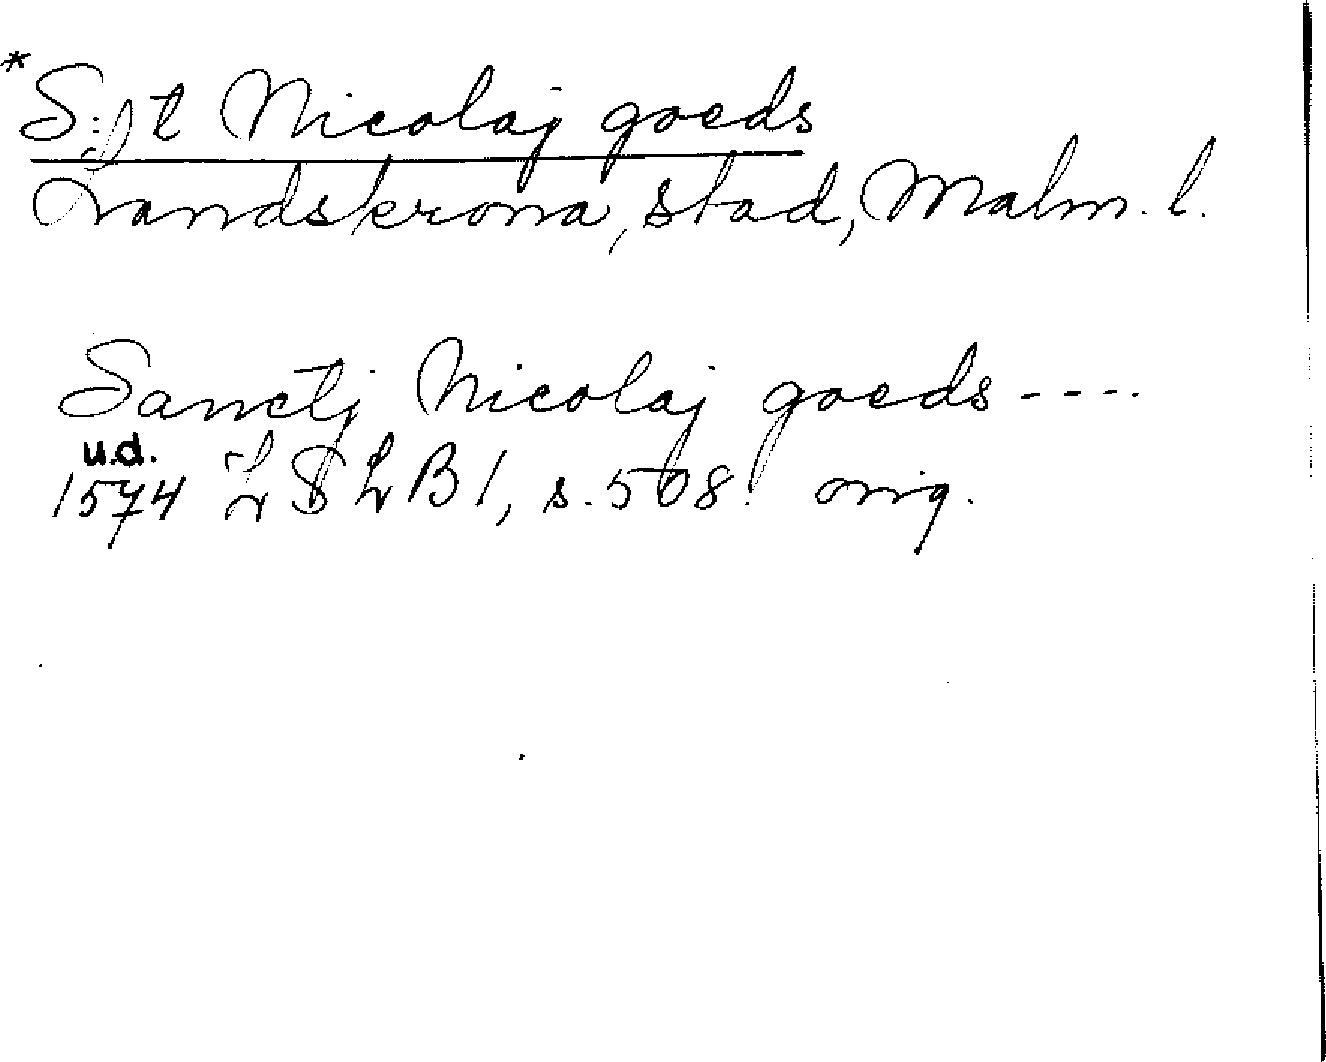 *S:t Nicolaj goeds
Landskrona, stad, Malm. l.
Sanctj Nicolaj goeds ----
u.d.
1574 LSLB 1, s. 508. orig.